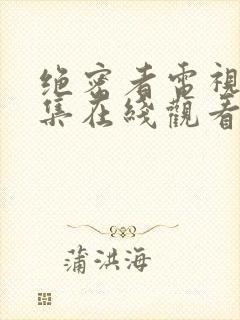 绝密者電視
集在綫觀看
蒲洪海